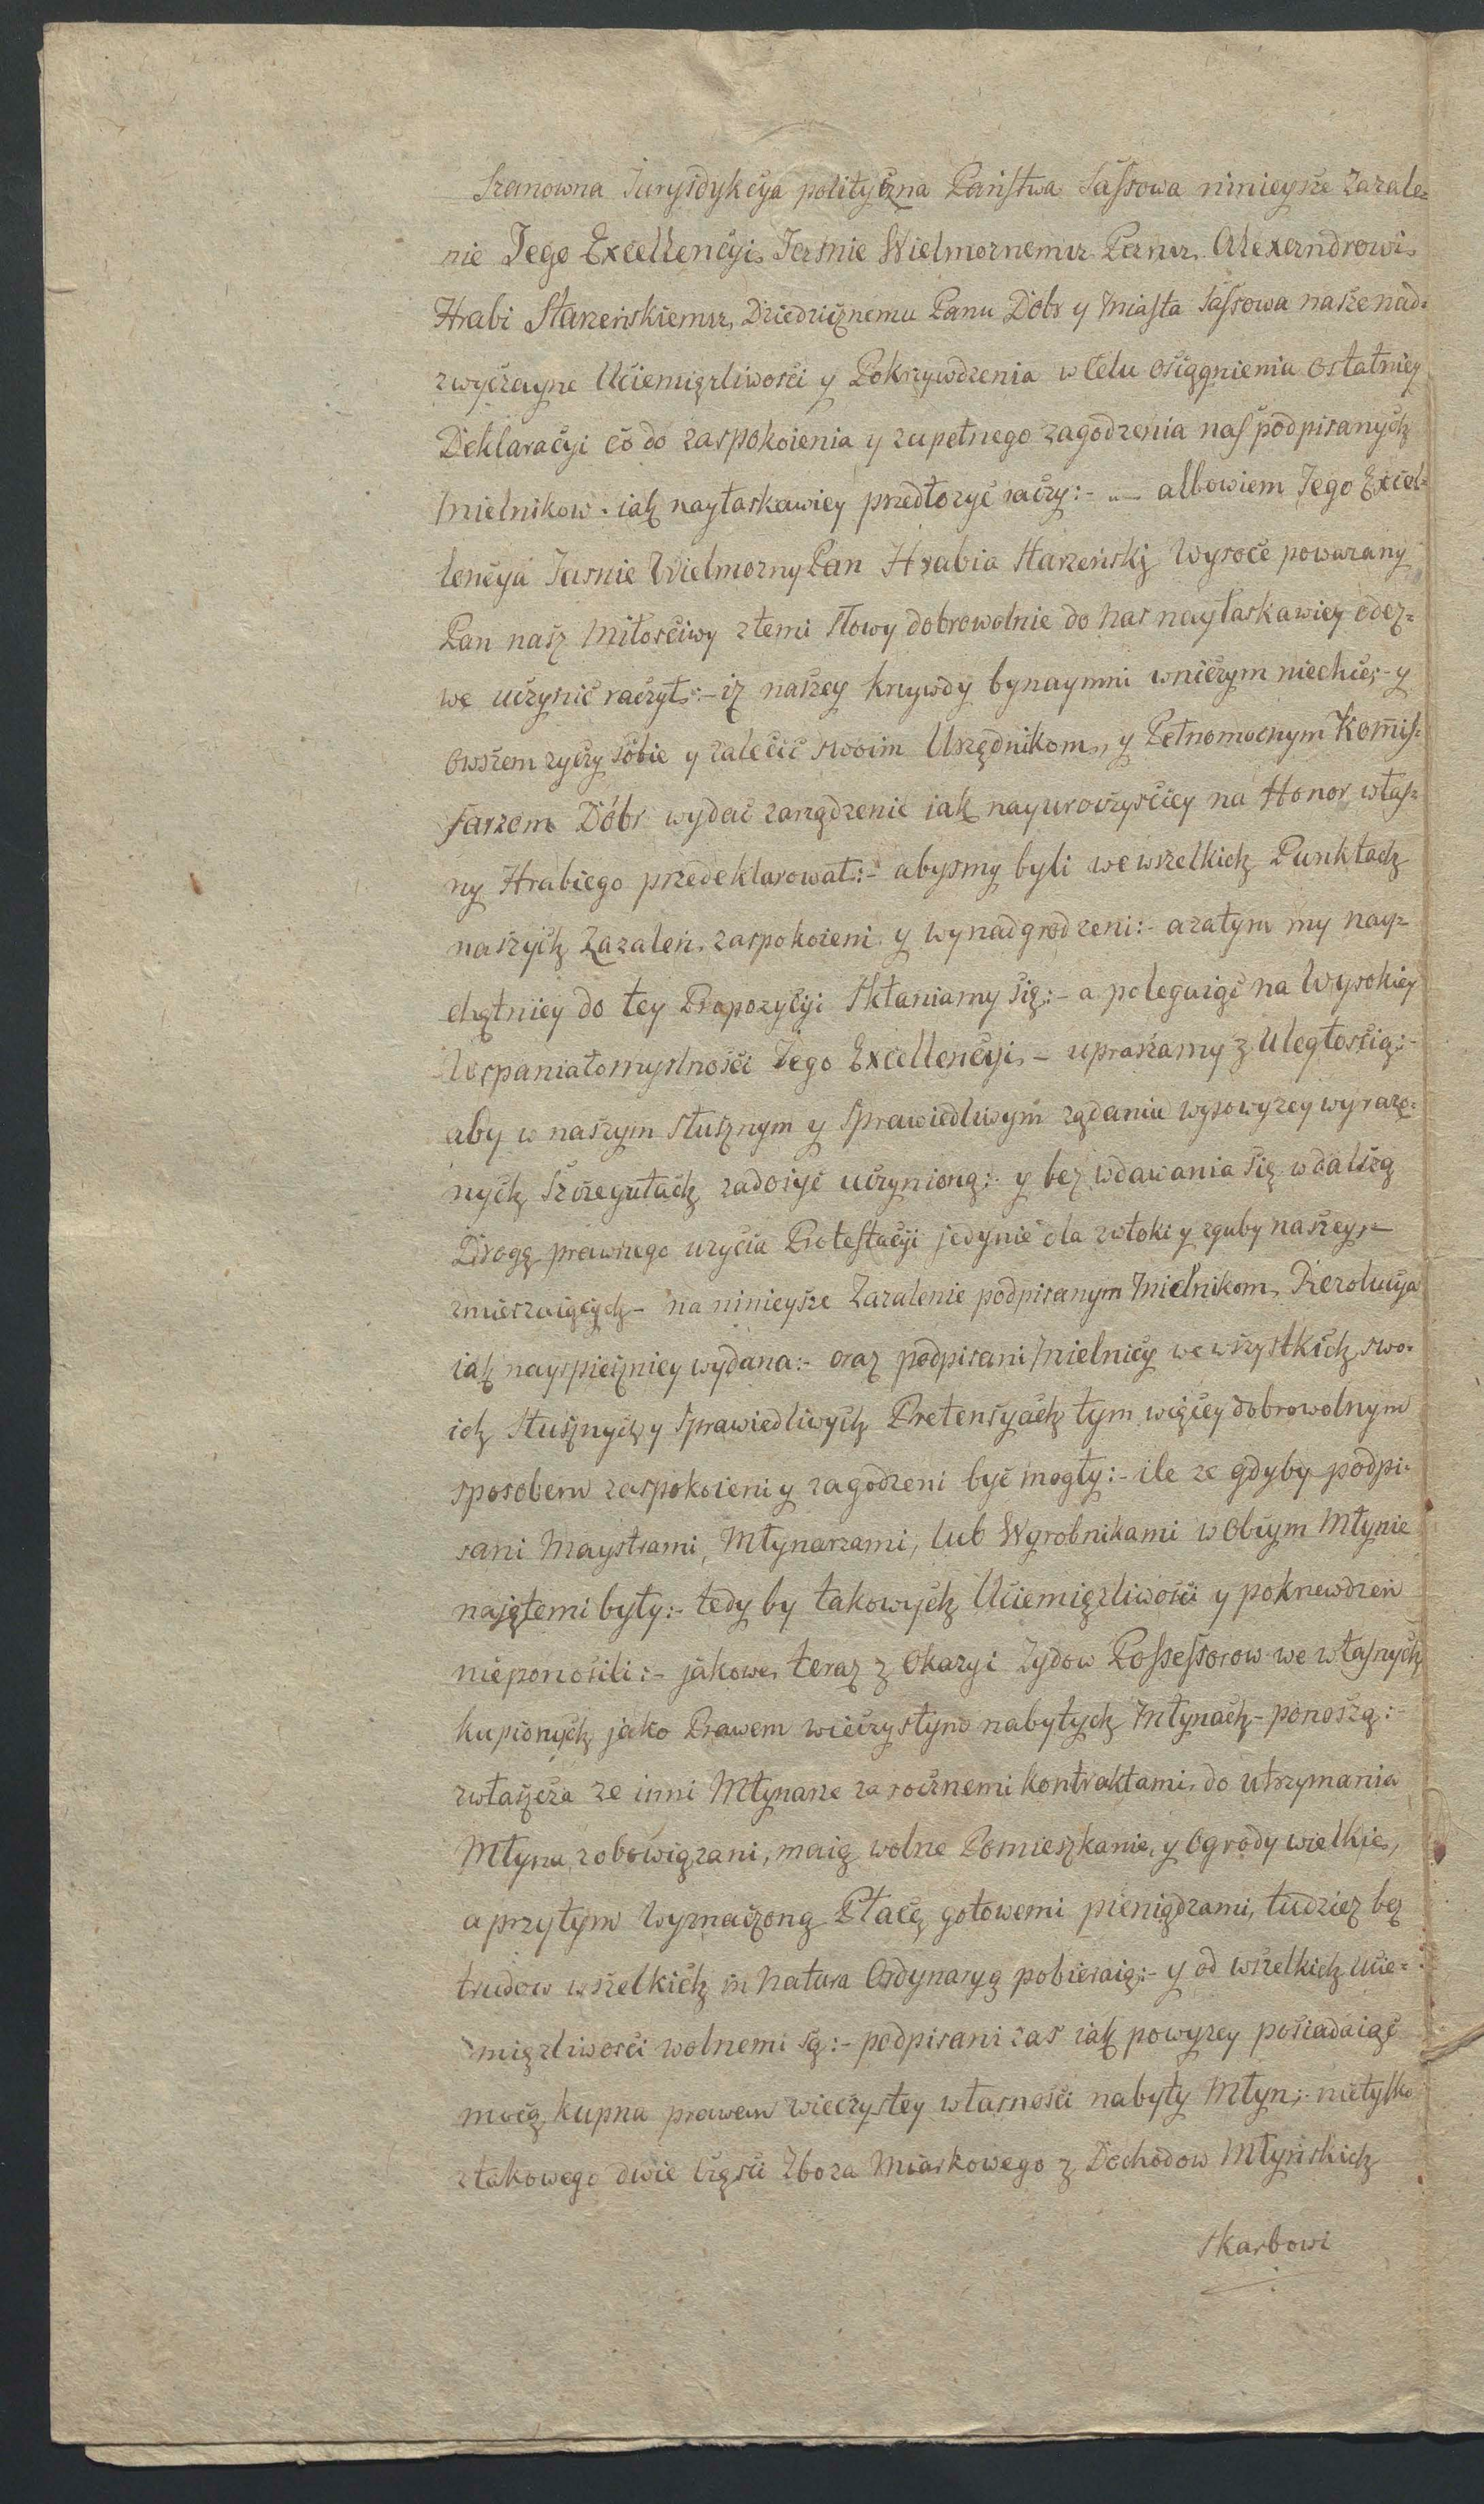 Szanowna Jurysdykcya polityczna Państwa Sassowa ninieysze Zazale=
nie Jego Excellencyi Jasnie Wielmoznemu Panu Alexandrowi
Hrabi Starzeńskiemu, Dziedzicznemu Panu Dóbr y Miasta Sassowa nasze nad=
zwyczayne Uciemięzliwości y Pokrzywdzenia w celu osiągnienia ostatniey
Deklaracyi co do zaspokoienia y zupełnego zagodzenia nas podpisanych
Mielnikow iak nayłaskawiey przedłozyć raczy:- albowiem Jego Excel=
lencya Jasnie Wielmozny Pan Hrabia Starzeński Wysoce powazany
Pan nasz Miłosciwy z temi słowy dobrowolnie do nas nayłaskawiey odez=
we uczynić raczył:- iz naszey krzywdy bynaymni w niczym niechce;- y
owszem zyczy sobie y zalecić swoim Urzędnikom, y Pełnomocnym Komis=
sarzom Dóbr wydać zarządzenie iak nayuroczyściey na Honor włas=
ny Hrabiego przedeklarował:- abysmy byli we wszelkich Punktach
naszych Zazaleń zaspokoieni y wynadgrodzeni:- a zatym my nay=
chętniey do tey Propozycyi skłaniamy się:- a polegaiąc na Wysokiey
Wspaniałomyslności Jego Excellencyi - upraszamy z Uległoscią:-
aby w naszym słusznym y sprawiedliwym ządaniu wysowyzey wyrazo=
nych Szczegułach zadosyć uczyniono:- y bez wdawania się w dalszą
Drogę prawnego uzycia Protestacyi jedynie dla zwłoki y zguby naszey
zmierzaiących - na ninieysze Zazalenie podpisanym Mielnikom Rezolucya
iak nayspieszniey wydana:- oraz podpisani Mielnicy we wszystkich swo=
ich słusznych y sprawiedliwych Pretensyach tym więcey dobrowolnym
sposobem zaspokoieni y zagodzeni być mogły:- ile ze gdyby podpi=
sani Maystrami, Młynarzami, lub Wyrobnikami w Obcym Młynie
najętemi były:- tedy by takowych Uciemięzliwości y pokrzewdzeń
nieponosili:- jakowe teraz z Okazyi Zydow Possessorow we własnych
kupionych jako Prawem wieczystym nabytych Młynach - ponoszą:-
zwłaszcza ze inni Młynarze za rocznemi kontraktami do utrzymania
Młyna zobowiązani, maią wolne Pomieszkanie, y Ogrody wielkie,
a przytym Wyznaczoną Płacę gotowemi pieniądzami, tudziez bez
trudow wszelkich in Natura Ordynaryą pobieraią:- y od wszelkich Ucie=
mięzliwości wolnemi są:- podpisani zas iak powyzey posiadaiąc
mocą kupna prawem wieczystey własności nabyty Młyn;- nietylko
z takowego dwie części Zboza Miarkowego z Dochodow Młyńskich
skarbowi